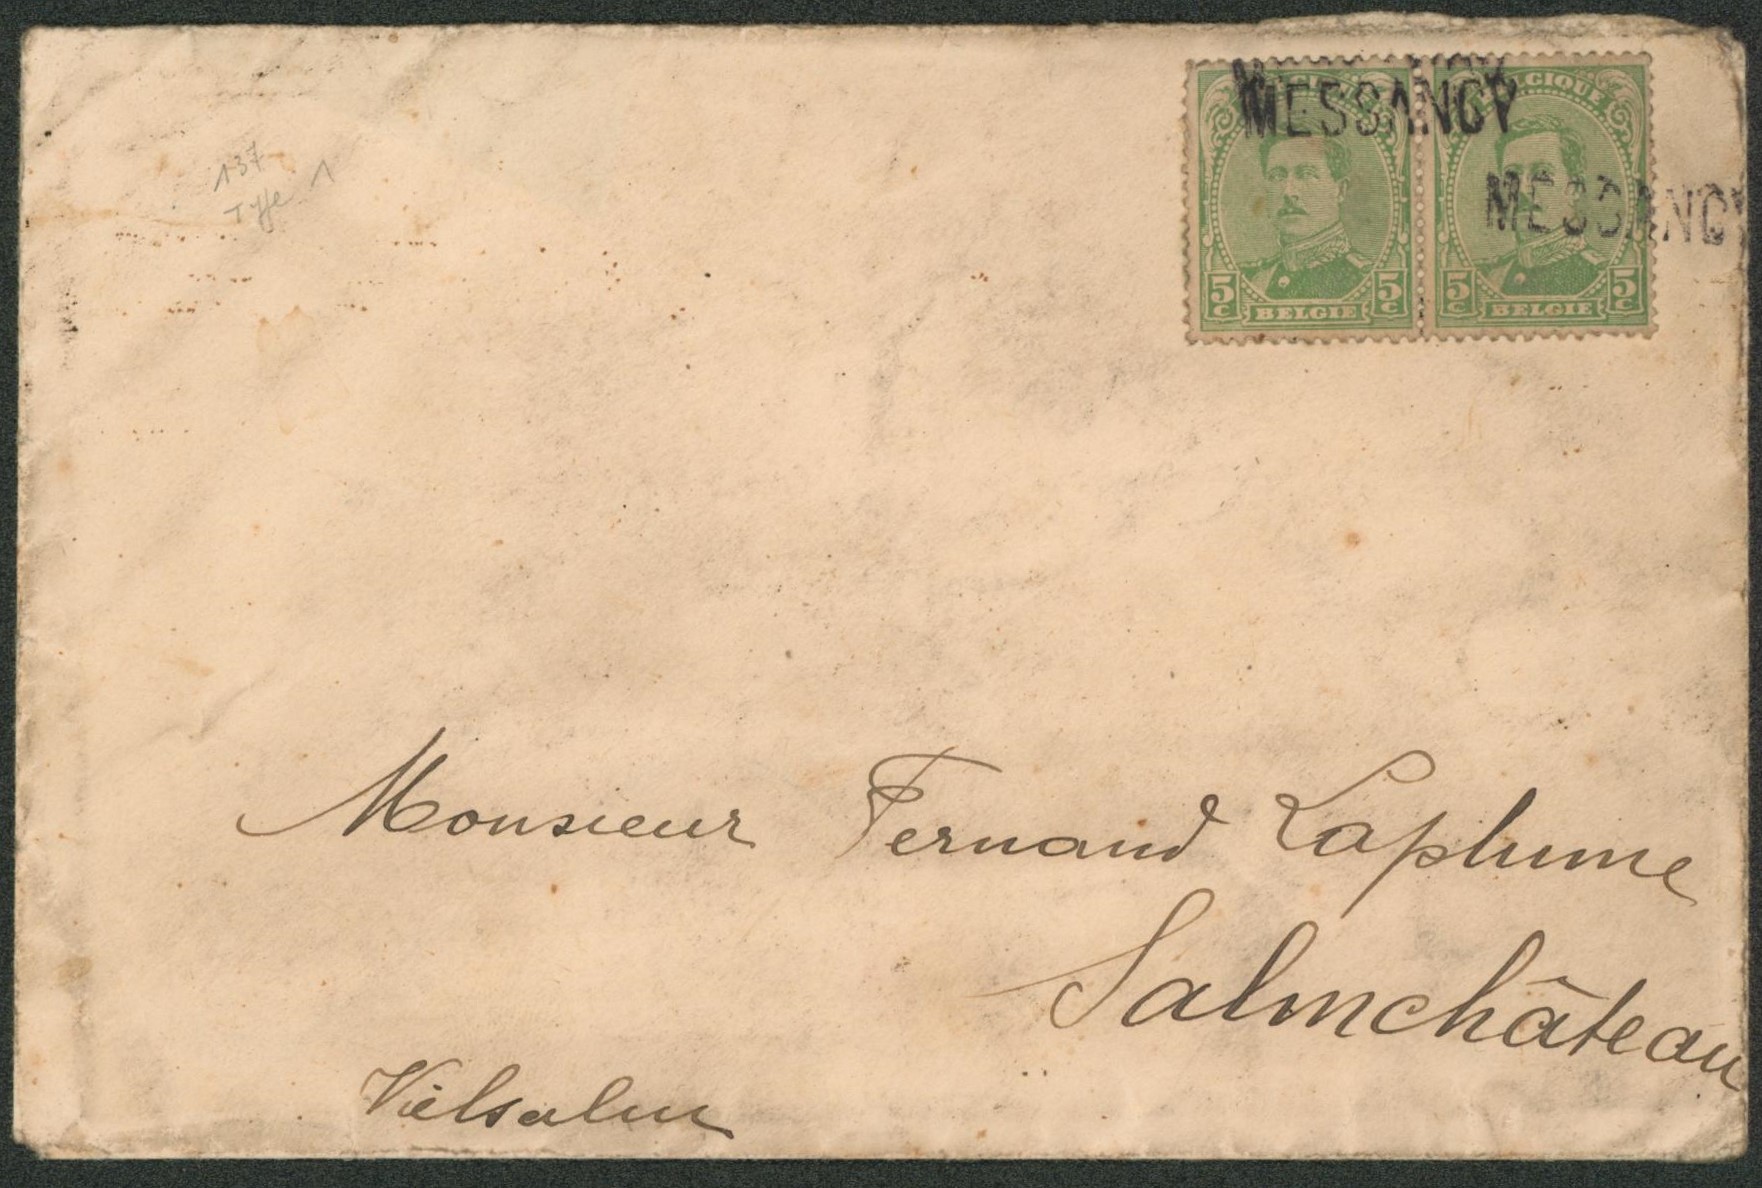 137
Type 1
BELGIQUE
MESSANCY
MESSANCY
5c BELGIE 5c
5c BELGIE 5c
Monsieur Fernand Laplume
Salmchâteau
Vielsalm